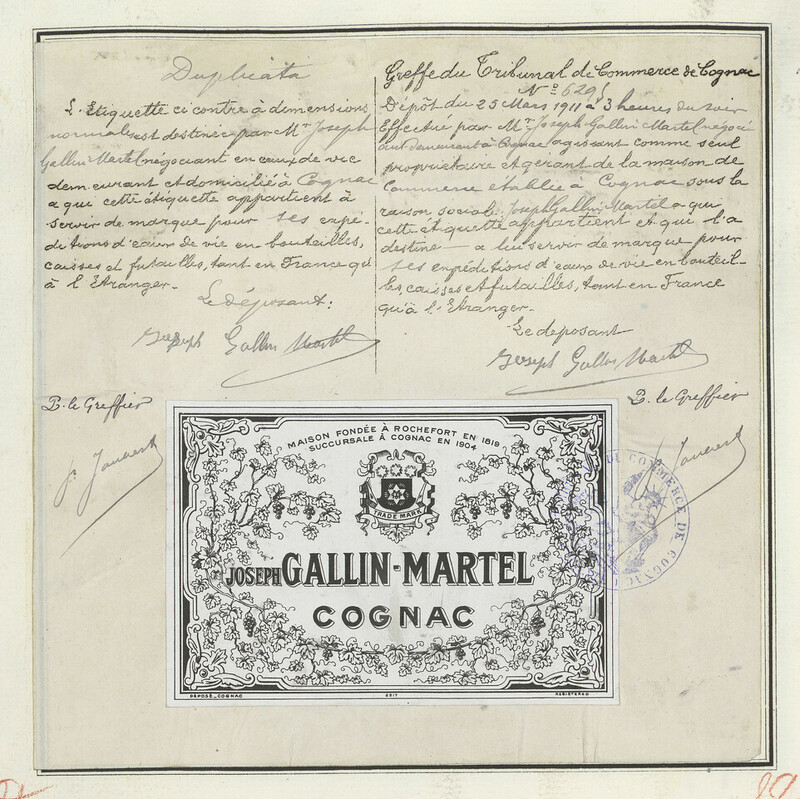 Duplicata
L'Etiquette ci contre à dimensions
normales est destinée par Mr Joseph
Gallin Martel négociant en eaux de vie
demeurant et domicilié à Cognac
a qui cette étiquette appartient à
servir de marque pour ses expé-
ditions d'eaux de vie en bouteilles,
caisses et futailles, tant en France qu'
à l'Etranger.
Le déposant:
Joseph Gallin Martel
P. le Greffier
Greffe du Tribunal de Commerce de Cognac
No 6295
Dépôt du 25 Mars 1911 à 3 heures du soir
Effectué par Mr Joseph Gallin Martel négoci
ant demeurant à Cognac agissant comme seul
propriétaire et gérant de la maison de
Commerce etablie à Cognac sous la
raison sociale: Joseph Gallin Martel a qui
cette étiquette appartient et qui l'a
destine a lui servir de marque pour
ses expéditions d'eaux de vie en bouteil-
les, caisses et futailles, tant en France
qu'à l'Etranger.
Le deposant
Joseph Gallin Martel
P. le Greffier
MAISON FONDÉE À ROCHEFORT EN 1819
SUCCURSALE À COGNAC EN 1904
TRADE MARK
JOSEPH GALLIN-MARTEL
COGNAC
DÉPOSÉ_COGNAC
REGISTERED
DU COMMERCE DE COGNAC